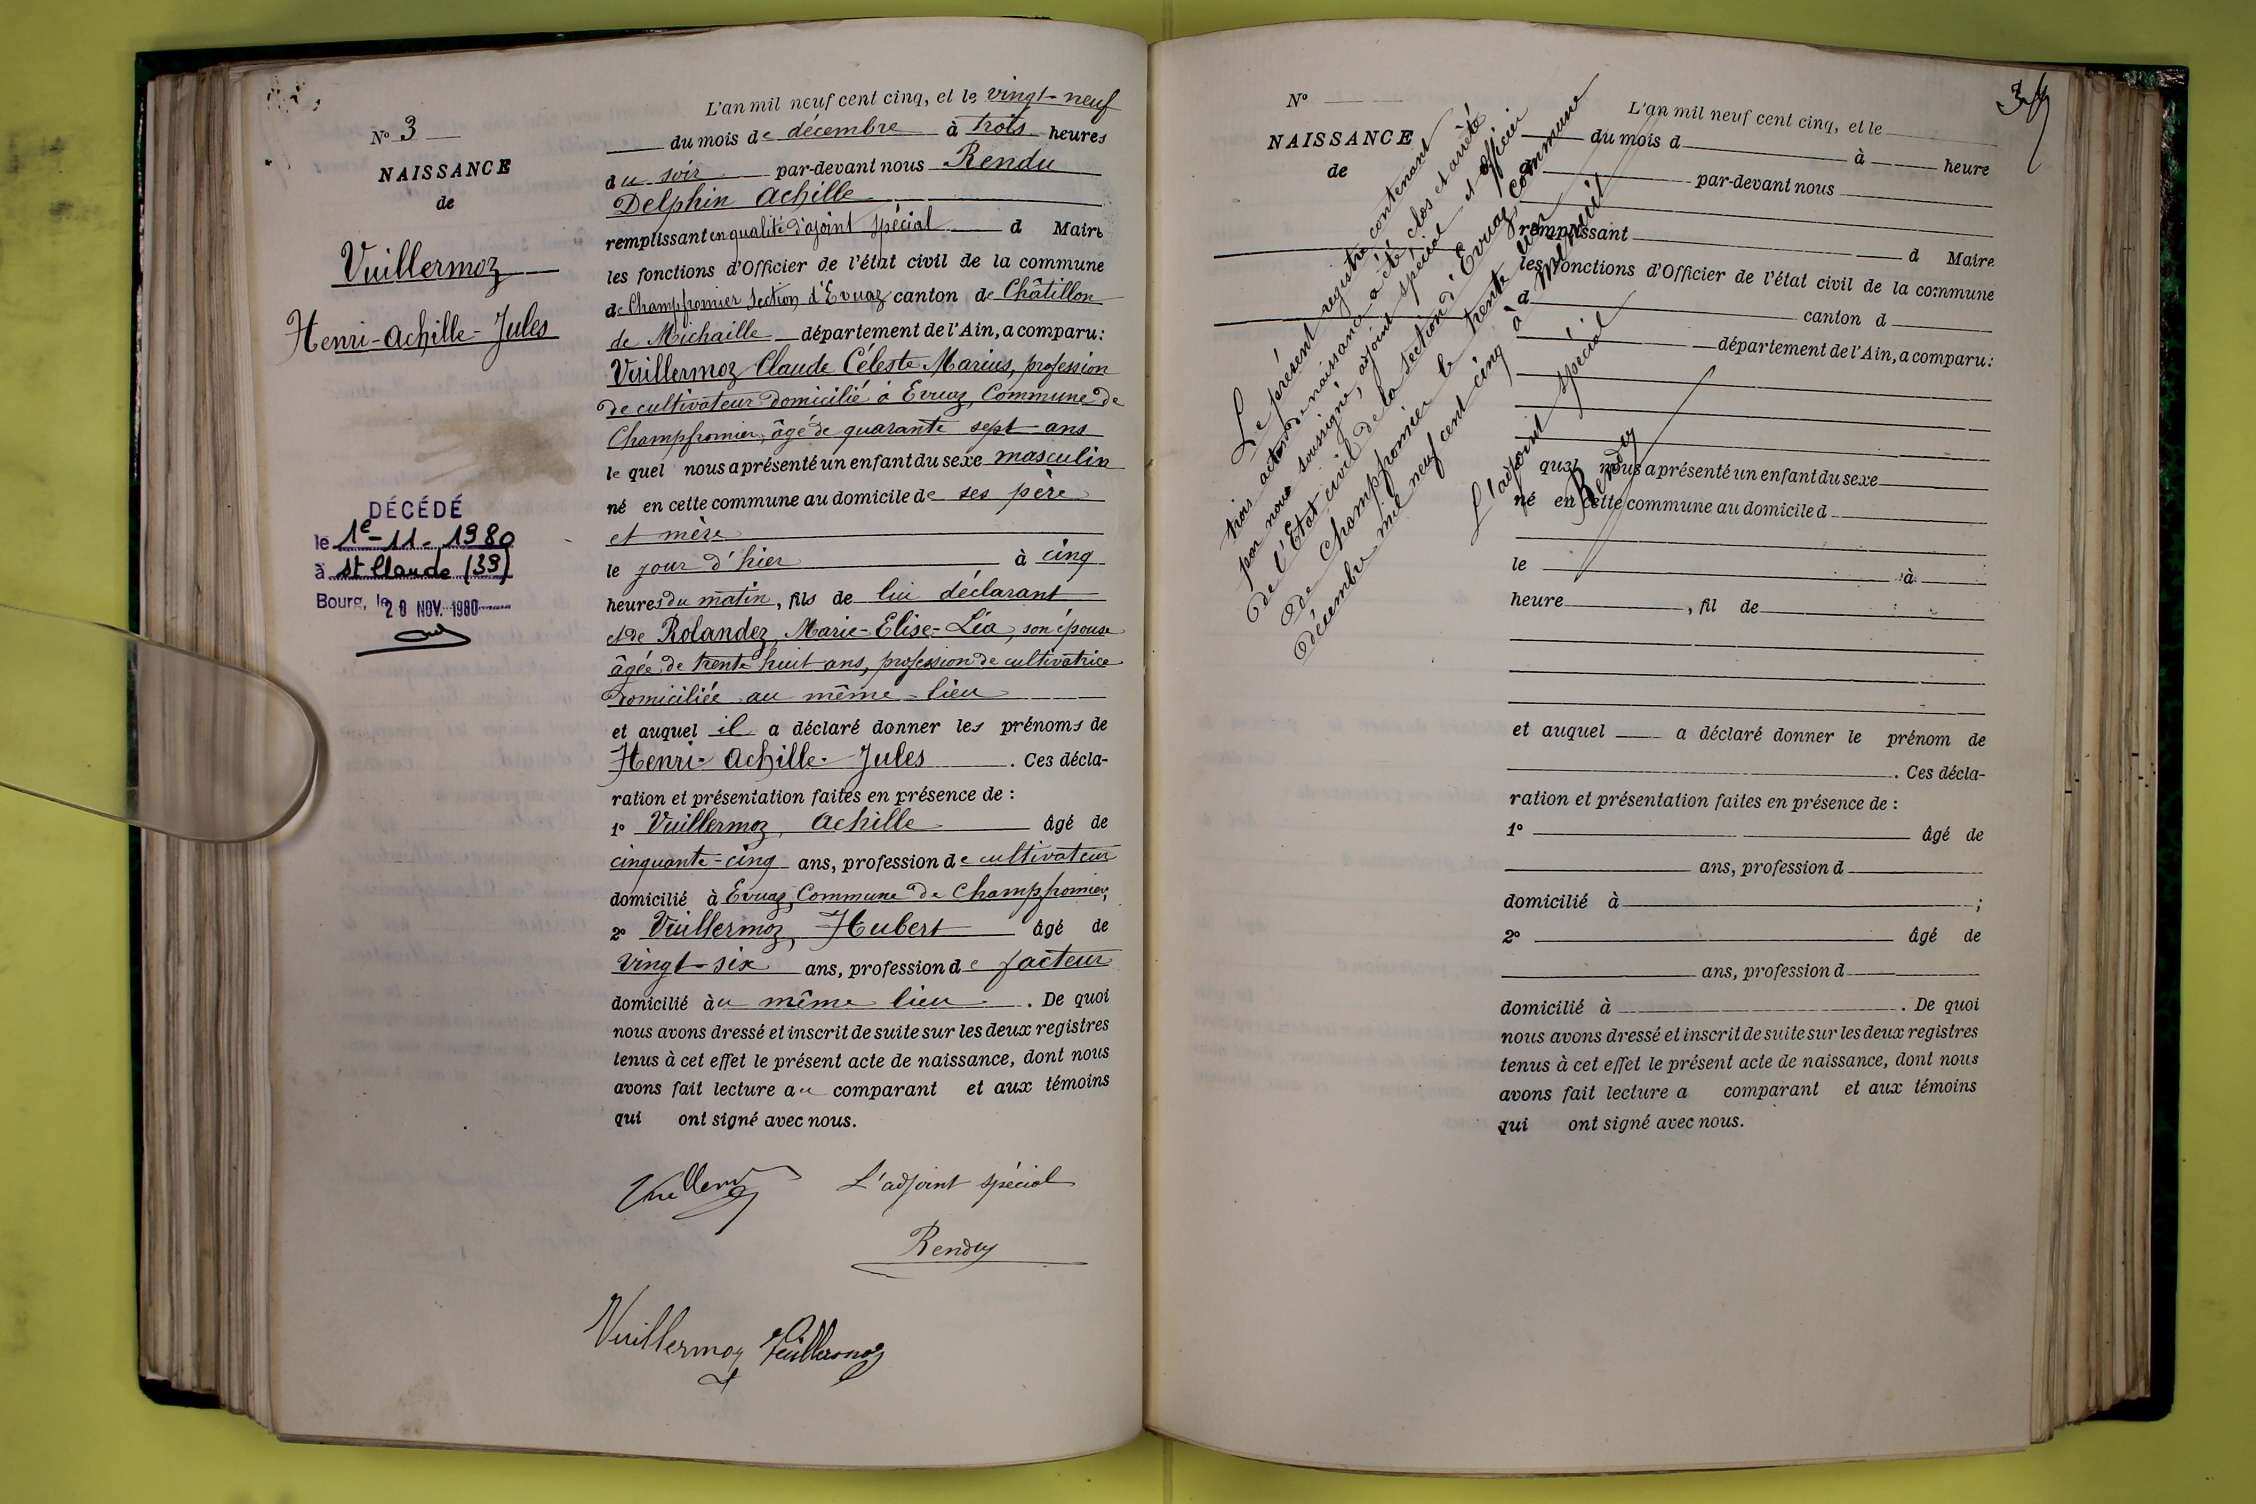 N° 3
NAISSANCE
de
Vuillermoz
Henri-Achille-Jules
DÉCÉDÉ
le 1e-11-1980
à St Claude (39)
Bourg, le 20 NOV. 1980
L'an mil neuf cent cinq, et le vingt-neuf
du mois de décembre à trois heures
du soir par-devant nous Rendu
Delphin Achille
remplissant en qualité d'adjoint spécial d Maire
les fonctions d'Officier de l'état civil de la commune
de Champfromier Section d'Evuaz canton de Châtillon
de Michaille département de l'Ain, a comparu:
Vuillermoz Claude Céleste Marius, profession
de cultivateur domicilié à Evuaz, Commune de
Champfromier, âgé de quarante sept ans
le quel nous a présenté un enfant du sexe masculin
né en cette commune au domicile de ses père
et mère
le jour d'hier à cinq
heures du matin, fils de lui déclarant
et de Rolandez, Marie-Elise-Léa, son épouse
âgée de trente huit ans, profession de cultivatrice
domiciliée au même lieu
et auquel il a déclaré donner les prénoms de
Henri-Achille-Jules. Ces décla-
ration et présentation faites en présence de :
1° Vuillermoz, Achille âgé de
cinquante-cinq ans, profession de cultivateur
domicilié à Evuaz, Commune de Champfromier;
2° Vuillermoz, Hubert âgé de
vingt-six ans, profession de facteur
domicilié àu même lieu. De quoi
nous avons dressé et inscrit de suite sur les deux registres
tenus à cet effet le présent acte de naissance, dont nous
avons fait lecture au comparant et aux témoins
qui ont signé avec nous.
Vuillermoz L'adjoint spécial
Rendu
Vuillermoz Vuillermoz
N°
NAISSANCE
de
Le présent registre contenant
trois actes de naissance a été clos et arrêté
par nous soussigné, adjoint spécial et officier
de l'Etat civil de la section d'Evuaz, commune
de Champfromier le trente un
décembre mil neuf cent cinq à minuit
L'adjoint spécial
Rendu
L'an mil neuf cent cinq, et le
du mois d à heure
d par-devant nous
remplissant d Maire
les fonctions d'Officier de l'état civil de la commune
d canton d
département de l'Ain, a comparu:
quel nous a présenté un enfant du sexe
né en cette commune au domicile d
le à
heure , fil de
et auquel a déclaré donner le prénom de
. Ces décla-
ration et présentation faites en présence de :
1° âgé de
ans, profession d
domicilié à ;
2° âgé de
ans, profession d
domicilié à . De quoi
nous avons dressé et inscrit de suite sur les deux registres
tenus à cet effet le présent acte de naissance, dont nous
avons fait lecture a comparant et aux témoins
qui ont signé avec nous.